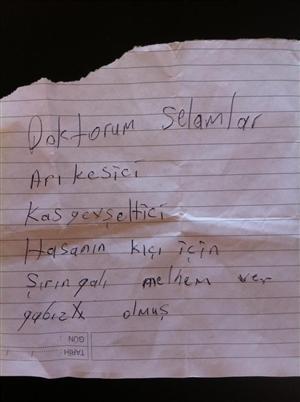 Doktorum Selamlar
Arı kesici
Kas gevşeltici
Hasanın kıçı için
Şırıngalı melhem ver
qabız olmuş
TARİH
GÜN :